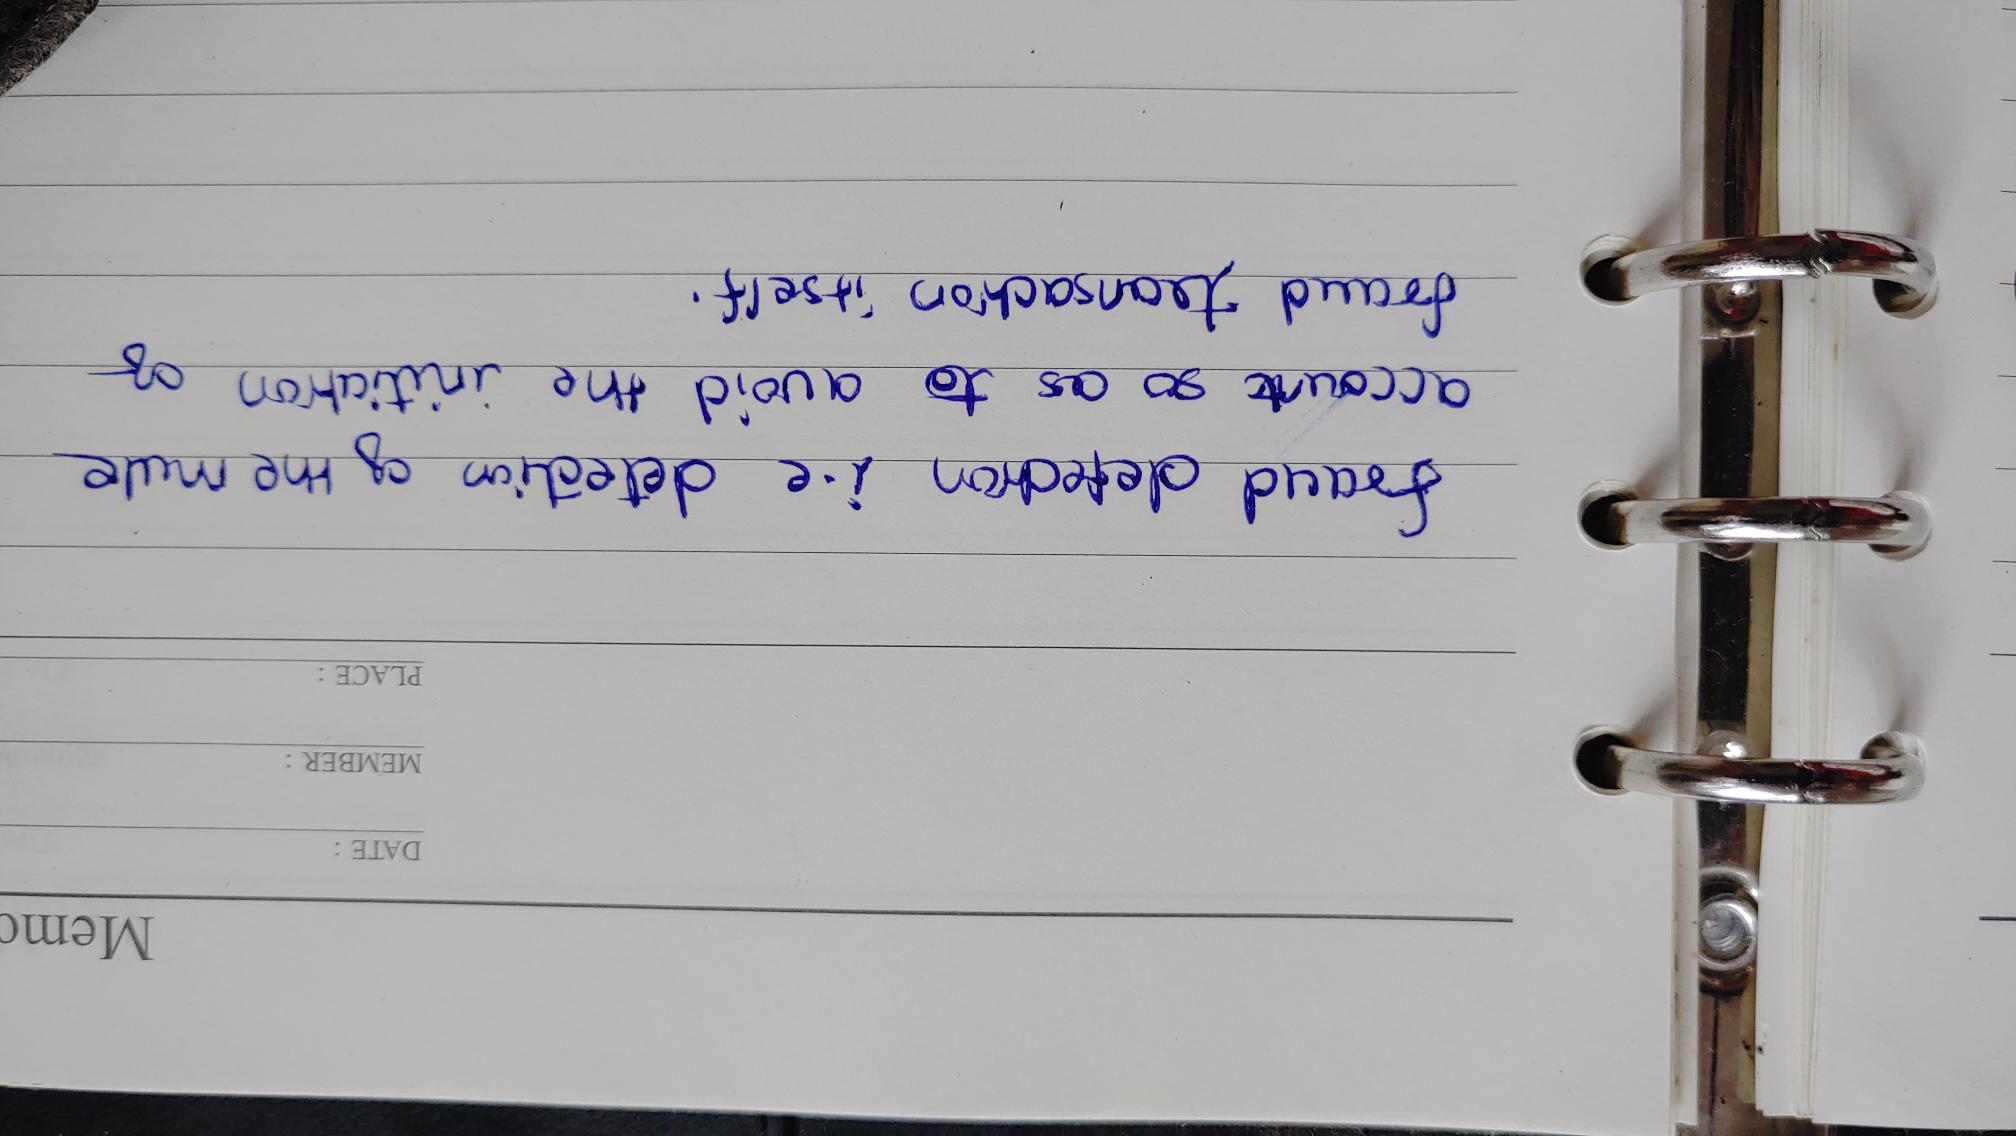 Memo
DATE :
MEMBER :
PLACE :
fraud detection i.e detection of the mule
account so as to avoid the initiation of
fraud transaction itself.